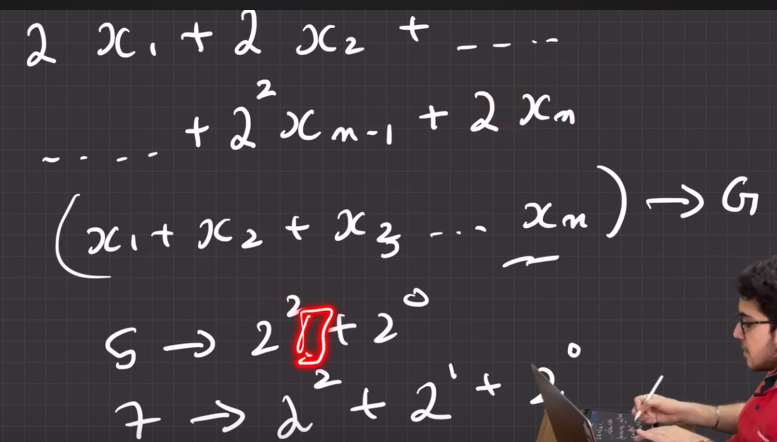 2 x₁ + 2 x₂ + - - - -
- - - - + 2² xₙ₋₁ + 2 xₙ
(x₁ + x₂ + x₃ ... xₙ) → G
5 → 2² + 2⁰
7 → 2² + 2¹ + 2⁰